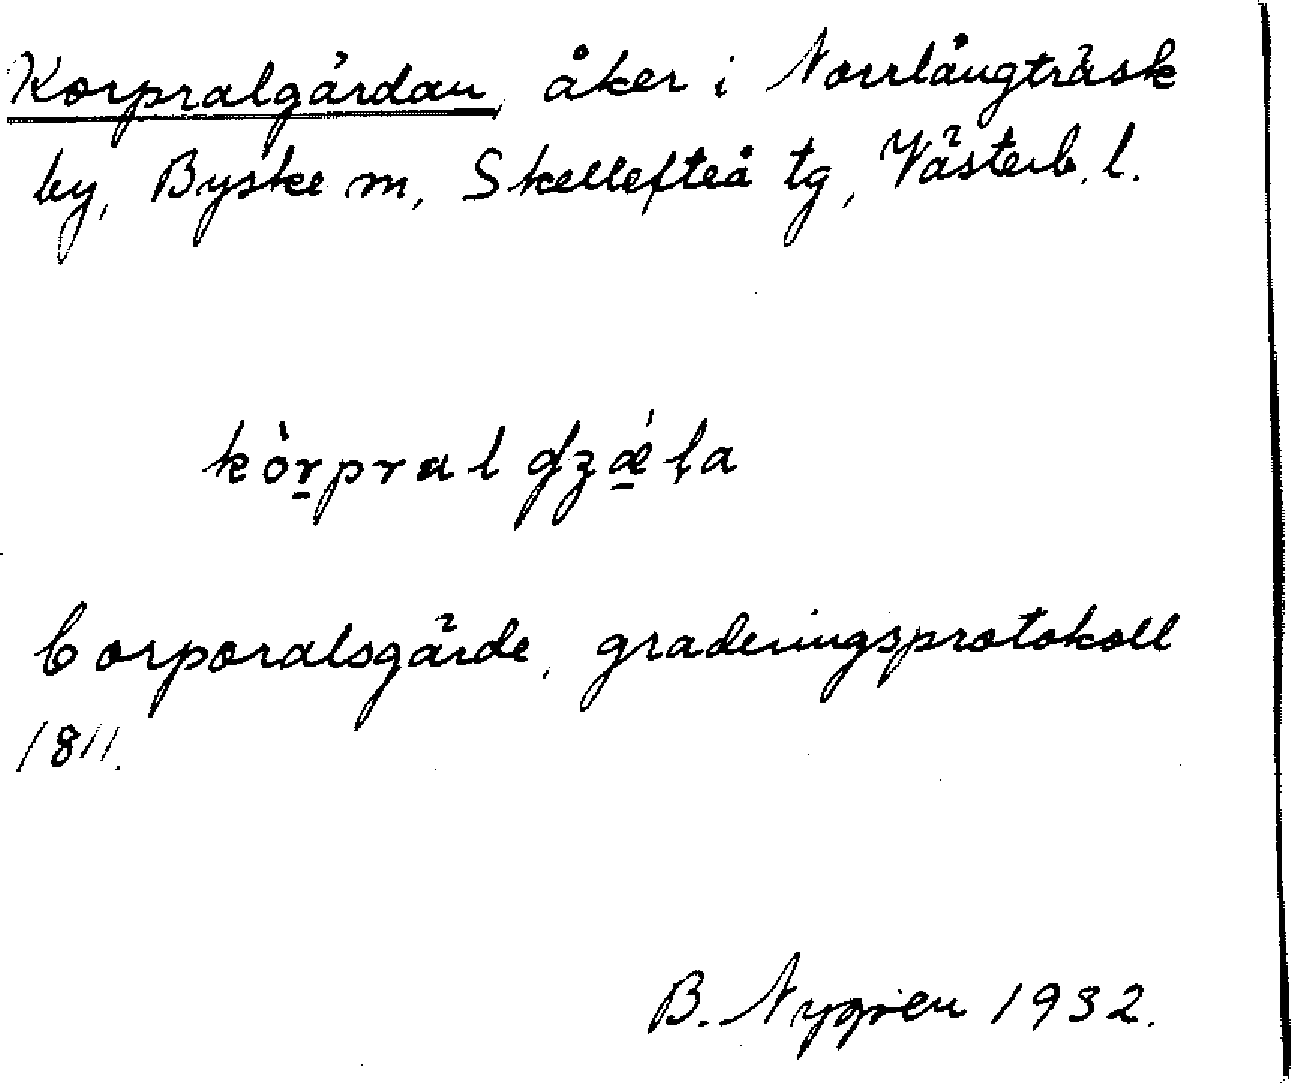 Korpralgärdan, åker i Norrlångträsk
by, Byske m, Skellefteå tg, Västerb. l.
Corporalsgärde, graderingsprotokoll
1811.
B. Nygren 1932.